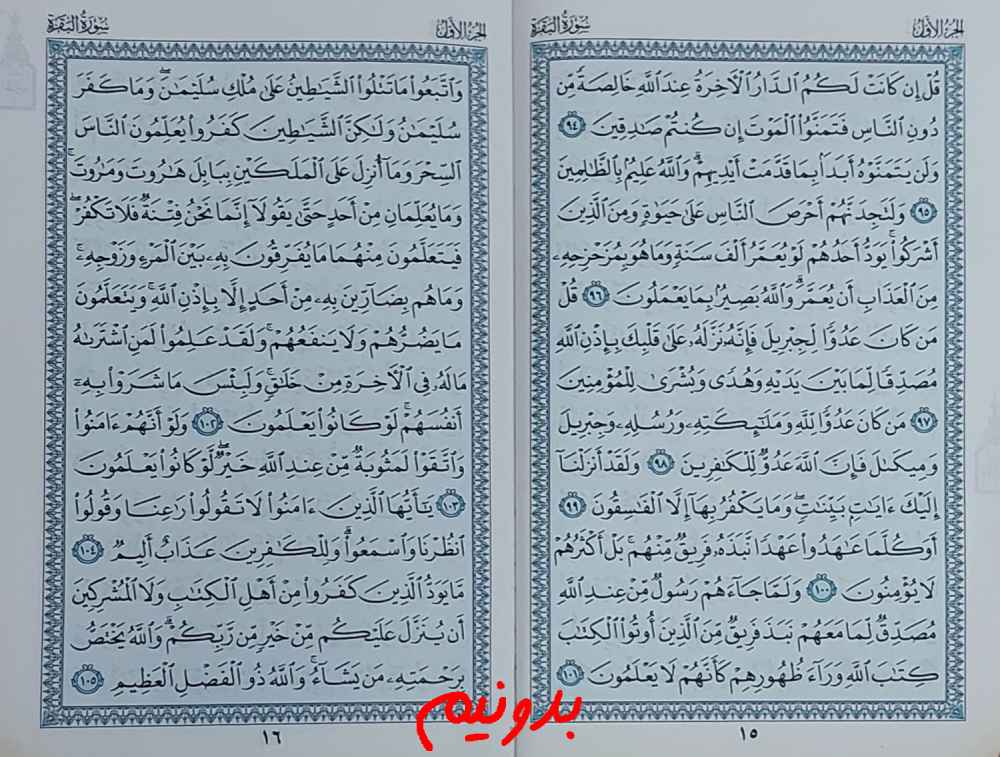 الجزء الأول
سورة البقرة
قُلْ إِن كَانَتْ لَكُمُ ٱلدَّارُ ٱلْـَٔاخِرَةُ عِندَ ٱللَّهِ خَالِصَةً مِّن
دُونِ ٱلنَّاسِ فَتَمَنَّوُا۟ ٱلْمَوْتَ إِن كُنتُمْ صَـٰدِقِينَ ٩٤
وَلَن يَتَمَنَّوْهُ أَبَدًۢا بِمَا قَدَّمَتْ أَيْدِيهِمْ ۗ وَٱللَّهُ عَلِيمٌۢ بِٱلظَّـٰلِمِينَ
٩٥ وَلَتَجِدَنَّهُمْ أَحْرَصَ ٱلنَّاسِ عَلَىٰ حَيَوٰةٍ وَمِنَ ٱلَّذِينَ
أَشْرَكُوا۟ ۚ يَوَدُّ أَحَدُهُمْ لَوْ يُعَمَّرُ أَلْفَ سَنَةٍ وَمَا هُوَ بِمُزَحْزِحِهِۦ
مِنَ ٱلْعَذَابِ أَن يُعَمَّرَ ۗ وَٱللَّهُ بَصِيرٌۢ بِمَا يَعْمَلُونَ ٩٦ قُلْ
مَن كَانَ عَدُوًّا لِّجِبْرِيلَ فَإِنَّهُۥ نَزَّلَهُۥ عَلَىٰ قَلْبِكَ بِإِذْنِ ٱللَّهِ
مُصَدِّقًا لِّمَا بَيْنَ يَدَيْهِ وَهُدًى وَبُشْرَىٰ لِلْمُؤْمِنِينَ
٩٧ مَن كَانَ عَدُوًّا لِّلَّهِ وَمَلَـٰٓئِكَتِهِۦ وَرُسُلِهِۦ وَجِبْرِيلَ
وَمِيكَىٰلَ فَإِنَّ ٱللَّهَ عَدُوٌّ لِّلْكَـٰفِرِينَ ٩٨ وَلَقَدْ أَنزَلْنَآ
إِلَيْكَ ءَايَـٰتٍۭ بَيِّنَـٰتٍ ۖ وَمَا يَكْفُرُ بِهَآ إِلَّا ٱلْفَـٰسِقُونَ ٩٩
أَوَكُلَّمَا عَـٰهَدُوا۟ عَهْدًا نَّبَذَهُۥ فَرِيقٌ مِّنْهُم ۚ بَلْ أَكْثَرُهُمْ
لَا يُؤْمِنُونَ ١٠٠ وَلَمَّا جَآءَهُمْ رَسُولٌ مِّنْ عِندِ ٱللَّهِ
مُصَدِّقٌ لِّمَا مَعَهُمْ نَبَذَ فَرِيقٌ مِّنَ ٱلَّذِينَ أُوتُوا۟ ٱلْكِتَـٰبَ
كِتَـٰبَ ٱللَّهِ وَرَآءَ ظُهُورِهِمْ كَأَنَّهُمْ لَا يَعْلَمُونَ ١٠١
١٥
الجزء الأول
سورة البقرة
وَٱتَّبَعُوا۟ مَا تَتْلُوا۟ ٱلشَّيَـٰطِينُ عَلَىٰ مُلْكِ سُلَيْمَـٰنَ ۖ وَمَا كَفَرَ
سُلَيْمَـٰنُ وَلَـٰكِنَّ ٱلشَّيَـٰطِينَ كَفَرُوا۟ يُعَلِّمُونَ ٱلنَّاسَ
ٱلسِّحْرَ وَمَآ أُنزِلَ عَلَى ٱلْمَلَكَيْنِ بِبَابِلَ هَـٰرُوتَ وَمَـٰرُوتَ ۚ
وَمَا يُعَلِّمَانِ مِنْ أَحَدٍ حَتَّىٰ يَقُولَآ إِنَّمَا نَحْنُ فِتْنَةٌ فَلَا تَكْفُرْ ۖ
فَيَتَعَلَّمُونَ مِنْهُمَا مَا يُفَرِّقُونَ بِهِۦ بَيْنَ ٱلْمَرْءِ وَزَوْجِهِۦ ۚ
وَمَا هُم بِضَآرِّينَ بِهِۦ مِنْ أَحَدٍ إِلَّا بِإِذْنِ ٱللَّهِ ۚ وَيَتَعَلَّمُونَ
مَا يَضُرُّهُمْ وَلَا يَنفَعُهُمْ ۚ وَلَقَدْ عَلِمُوا۟ لَمَنِ ٱشْتَرَىٰهُ
مَا لَهُۥ فِى ٱلْـَٔاخِرَةِ مِنْ خَلَـٰقٍ ۚ وَلَبِئْسَ مَا شَرَوْا۟ بِهِۦٓ
أَنفُسَهُمْ ۚ لَوْ كَانُوا۟ يَعْلَمُونَ ١٠٢ وَلَوْ أَنَّهُمْ ءَامَنُوا۟
وَٱتَّقَوْا۟ لَمَثُوبَةٌ مِّنْ عِندِ ٱللَّهِ خَيْرٌ ۖ لَّوْ كَانُوا۟ يَعْلَمُونَ
١٠٣ يَـٰٓأَيُّهَا ٱلَّذِينَ ءَامَنُوا۟ لَا تَقُولُوا۟ رَٰعِنَا وَقُولُوا۟
ٱنظُرْنَا وَٱسْمَعُوا۟ ۗ وَلِلْكَـٰفِرِينَ عَذَابٌ أَلِيمٌ ١٠٤
مَّا يَوَدُّ ٱلَّذِينَ كَفَرُوا۟ مِنْ أَهْلِ ٱلْكِتَـٰبِ وَلَا ٱلْمُشْرِكِينَ
أَن يُنَزَّلَ عَلَيْكُم مِّنْ خَيْرٍ مِّن رَّبِّكُمْ ۗ وَٱللَّهُ يَخْتَصُّ
بِرَحْمَتِهِۦ مَن يَشَآءُ ۚ وَٱللَّهُ ذُو ٱلْفَضْلِ ٱلْعَظِيمِ ١٠٥
١٦
بدونیم